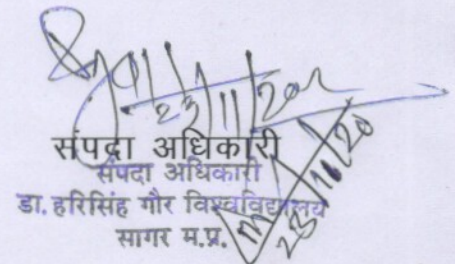 23/11/202
संपदा अधिकारी
संपदा अधिकारी
डा. हरिसिंह गौर विश्वविद्यालय
सागर म.प्र.
23/11/20